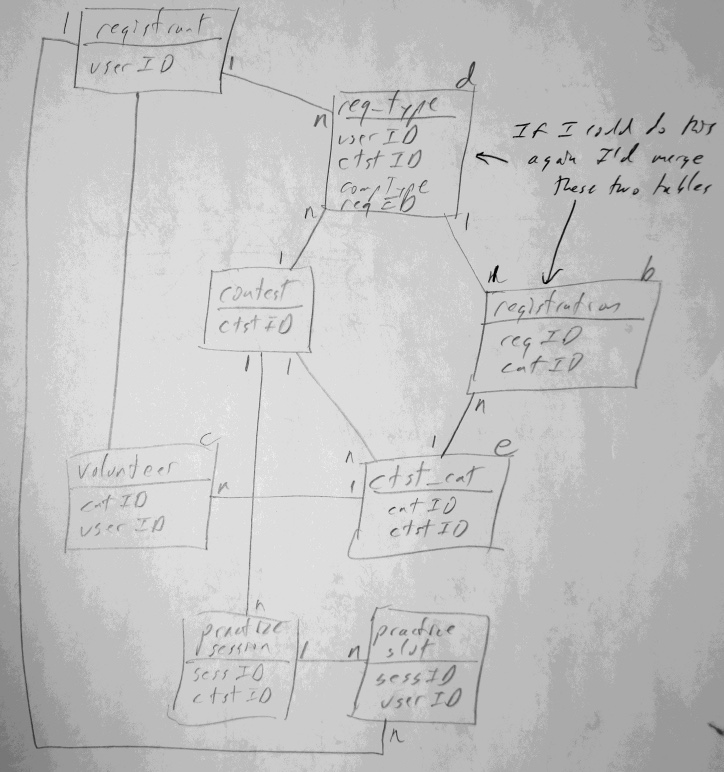 1
registrant
user ID
1
n
d
reg_type
user ID
ctst ID
compType
reg ID
n
1
If I could do this
again I'd merge
these two tables
1
contest
ctst ID
1 1
n
b
registration
reg ID
cat ID
n
c
volunteer
cat ID
user ID
n
n
1
1
e
ctst_cat
cat ID
ctst ID
n
practice
session
sess ID
ctst ID
1
n
practice
slot
sess ID
user ID
n